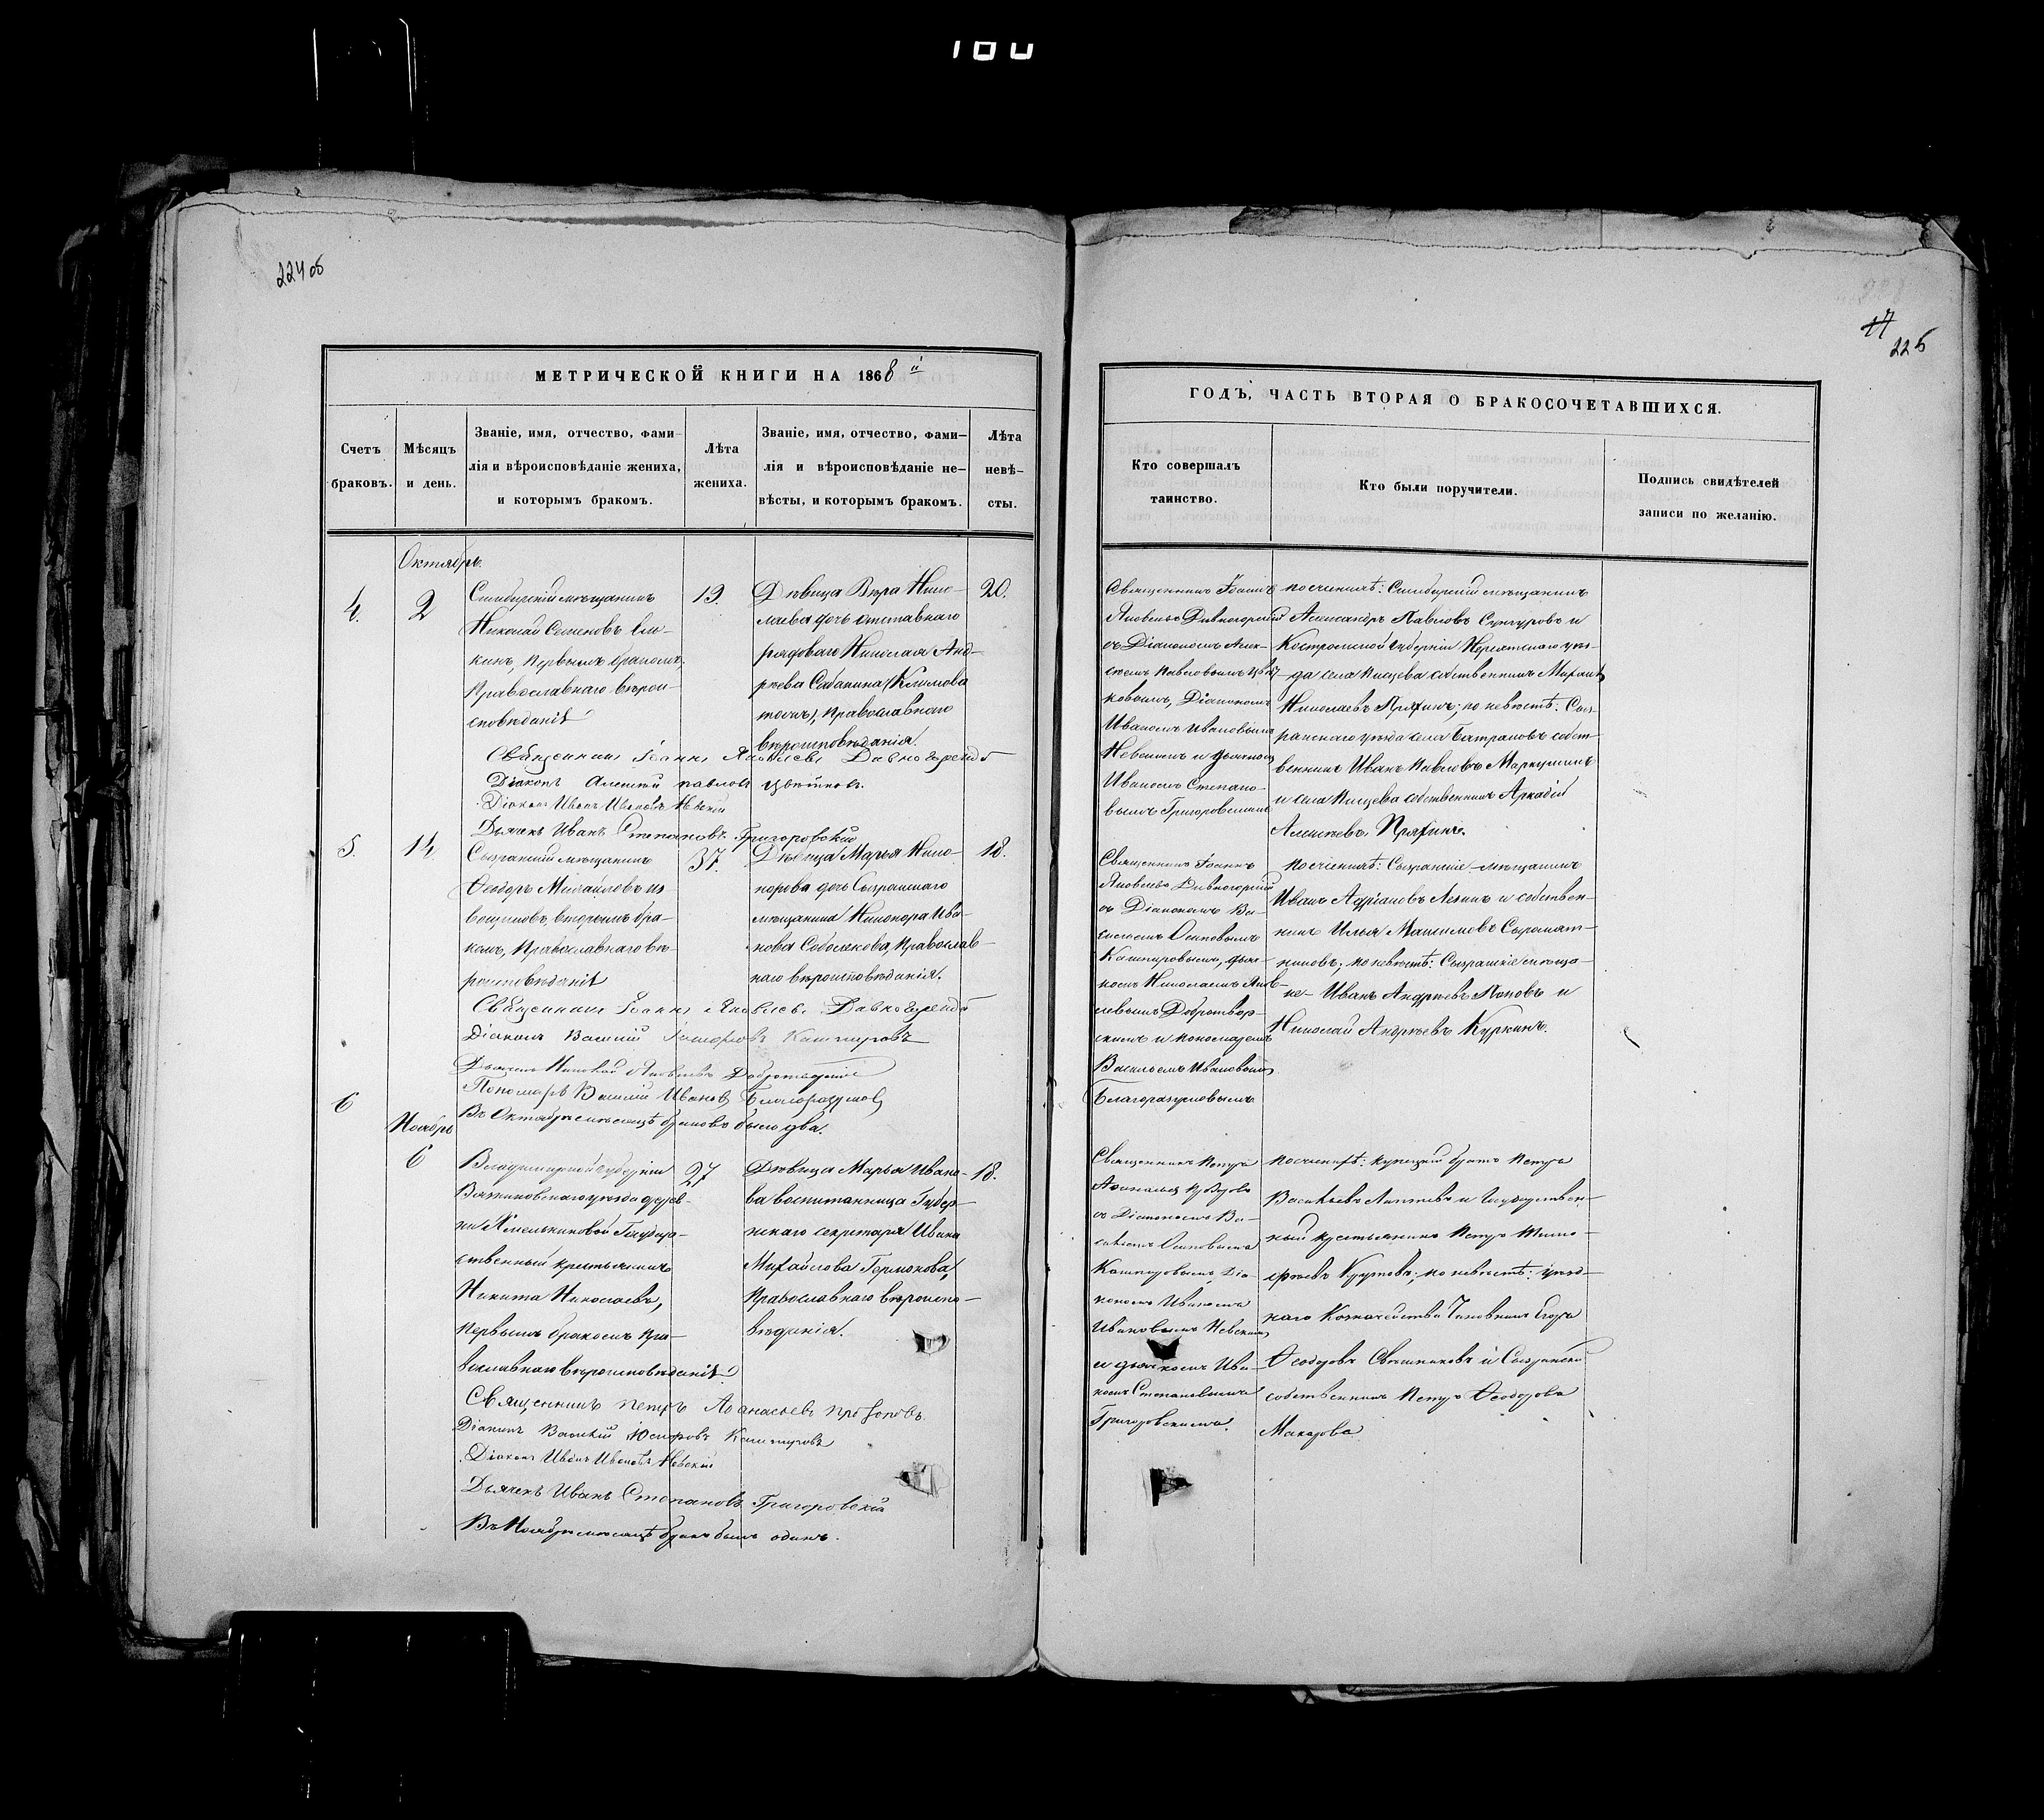 180
224 об
17
225
МЕТРИЧЕСКОЙ КНИГИ НА 1868 й
Счетъ
браковъ.
Мѣсяцъ
и день.
Званіе, имя, отчество, фами-
лія и вѣроисповѣданіе жениха,
и которымъ бракомъ.
Лѣта
жениха.
Званіе, имя, отчество, фами-
лія и вѣроисповѣданіе не-
вѣсты, и которымъ бракомъ.
Лѣта
невѣ-
сты.
Октябрь.
4.
2
Симбирскій мѣщанинъ
Николай Семеновъ
первымъ бракомъ,
Православнаго вѣрои-
сповѣданія
19.
Дѣвица Вѣра Нико-
лаева дочь отставнаго
рядоваго Николая Анд-
рѣева Сабанина (Климова
тожъ), православнаго
вѣроисповѣданія.
20.
Священникъ Іоаннъ Яковлевъ Дивногорскій
Діаконъ Алексѣй Павловъ Цвѣтковъ.
Діаконъ Иванъ Ивановъ Невскій
Дьячекъ Иванъ Степановъ Григоровскій
5.
14.
Сызранскій мѣщанинъ
Ѳеодоръ Михайловъ Из-
вощиковъ, вторымъ бра-
комъ, Православнаго вѣ-
роисповѣданія
37.
Дѣвица Марья Нико-
норова дочь Сызранскаго
мѣщанина Никонора Ива-
нова Соболекова, Православ-
наго вѣроисповѣданія.
18.
Священникъ Іоаннъ Яковлевъ Дивногорскій
Діаконъ Василій Іосифовъ Кашпуровъ
Дьячекъ Николай Яковлевъ Добротворскій
Пономарь Василій Ивановъ Благоразумовъ
Въ Октябрѣ мѣсяцѣ браковъ было два.
6
Ноябрь
6
Владимірской губерніи
Вязниковскаго уѣзда дерев-
ни Государ-
ственный крестьянинъ
Никита Николаевъ,
первымъ бракомъ, пра-
вославнаго вѣроисповѣданія.
27
Дѣвица Марья Ивано-
ва воспитанница Губер-
нскаго секретаря Ивана
Михайлова Гермонова,
православнаго вѣроиспо-
вѣданія.
18.
Священникъ Петръ Аѳанасьевъ
Діаконъ Василій Іосифовъ Кашпуровъ
Діаконъ Иванъ Ивановъ Невскій
Дьячекъ Иванъ Степановъ Григоровскій
Въ Ноябрѣ мѣсяцѣ бракъ былъ одинъ.
ГОДЪ, ЧАСТЬ ВТОРАЯ О БРАКОСОЧЕТАВШИХСЯ.
Кто совершалъ
таинство.
Кто были поручители.
Подпись свидѣтелей
записи по желанію.
Священникъ Іоаннъ
Яковлевъ Дивногорскій
съ Діакономъ Алек-
сѣемъ Павловымъ Цвѣт-
ковымъ, Діакономъ
Иваномъ Ивановымъ
Невскимъ и дьячкомъ
Иваномъ Степано-
вымъ Григоровскимъ
по женихѣ: Симбирскій мѣщанинъ
Александръ Павловъ Сунгуровъ и
Костромской губерніи Нерехтскаго уѣз-
да села Писцева собственникъ Михаилъ
Николаевъ Пряхинъ; по невѣстѣ: Сыз-
ранскаго уѣзда села Батраковъ собст-
венникъ Иванъ Павловъ Маркушинъ
и села Писцева собственникъ Аркадій
Алексѣевъ Пряхинъ.
Священникъ Іоаннъ
Яковлевъ Дивногорскій
съ Діакономъ Ва-
сильемъ Осиповымъ
Кашпуровымъ, дьяч-
комъ Николаемъ Яков-
левымъ Добротвор-
скимъ и пономаремъ
Васильемъ Ивановымъ
Благоразумовымъ
по женихѣ: Сызранскіе мѣщанинъ
Иванъ Адріановъ Лекинъ и собствен-
никъ Илья Максимовъ Сыромят-
никовъ; по невѣстѣ: Сызранскіе мѣща-
не Иванъ Андреевъ Поповъ и
Николай Андреевъ Куркинъ.
Священникъ Петръ
Аѳанасьевъ
съ Діакономъ Ва-
сильемъ Осиповымъ
Кашпуровымъ, Діа-
кономъ Иваномъ
Ивановымъ Невскимъ
и дьячкомъ Ива-
номъ Степановымъ
Григоровскимъ.
по женихѣ: купецкій братъ Петръ
Васильевъ Лаптевъ и Государствен-
ный крестьянинъ Петръ Тимо-
фѣевъ; по невѣстѣ: уѣзд-
наго Казначейства Чиновникъ Егоръ
Ѳеодоровъ Свѣшниковъ и Сызранскій
собственникъ Петръ Ѳеодоровъ
Макаровъ